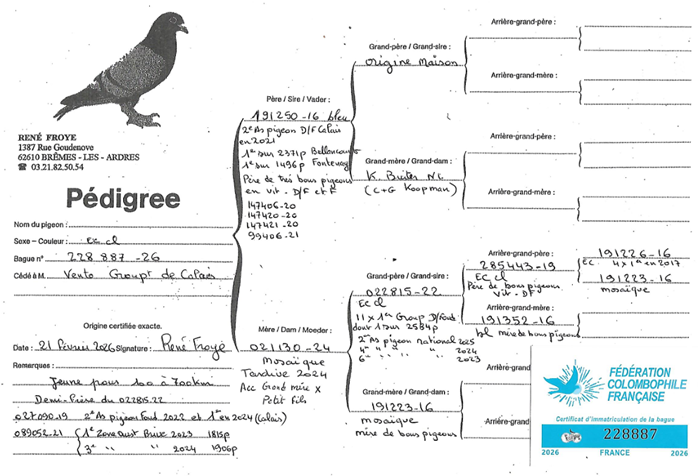 RENÉ FROYE
1387 Rue Goudenove
62610 BRÊMES - LES - ARDRES
☎ 03.21.82.50.54
Pédigree
Nom du pigeon :
Sexe – Couleur : Ec cl
Bague n° 228 887 -26
Cédé à M. Vente Group^t de Calais
Origine certifiée exacte.
Date : 21 Février 2026 Signature : René Froyé
Remarques :
Jeune pour 500 à 700km
Demi-Frère du 022815.22
027090.19 2^e As pigeon Fond 2022 et 1^er en 2024 (Calais)
089052.21 1^e Zone Brive 2023 1815p
3^e " " 2024 1906p
Père / Sire / Vader :
191250-16 bleu
2^e As pigeon D/F Calais
en 2021
1^e sur 2371p Bellancourt
1^e sur 1496p Fontenay
Père de très bons pigeons
en vit. D/F et F
147406-20
147420-20
147421-20
99406-21
Mère / Dam / Moeder :
021130-24
Mosaïque
Tardive 2024
Acc Grand mère x
Petit fils
Grand-père / Grand-sire :
origine Maison
Grand-mère / Grand-dam :
K.
(C+G Koopman)
Grand-père / Grand-sire :
022815-22
Ec cl
11 x 1^er Group D/Fond
dont 1 sur 2584p
2^e As pigeon national 2025
4^e " " " 2024
6^e " " " 2023
Grand-mère / Grand-dam :
191223-16
mosaïque
mère de bons pigeons
Arrière-grand-père :
Arrière-grand-mère :
Arrière-grand-père :
Arrière-grand-mère :
Arrière-grand-père :
285443-19
Ec cl
Père de bons pigeons
Vit - DF
Arrière-grand-mère :
191352-16
bl mère de bons pigeons
191226-16
Ec. 4 x 1^er en 2017
191223-16
mosaïque
Arrière-grand-père
Arrière-grand-mère
FÉDÉRATION
COLOMBOPHILE
FRANÇAISE
Certificat d'immatriculation de la bague
228887
2026 FRANCE 2026